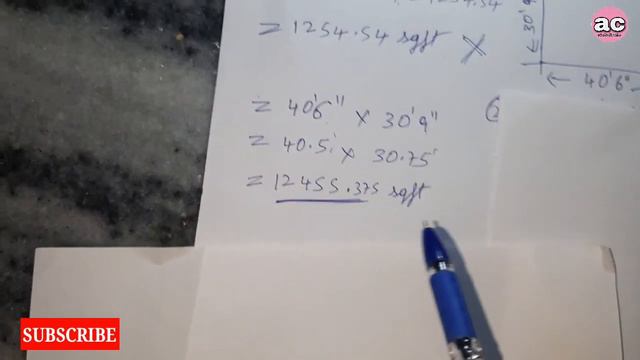 = 1254.54
= 1254.54 sqft X
= 40'6" x 30'9"
= 40.5' x 30.75'
= 12455.375 sqft
30'9
← 40'6"
ac
SUBSCRIBE